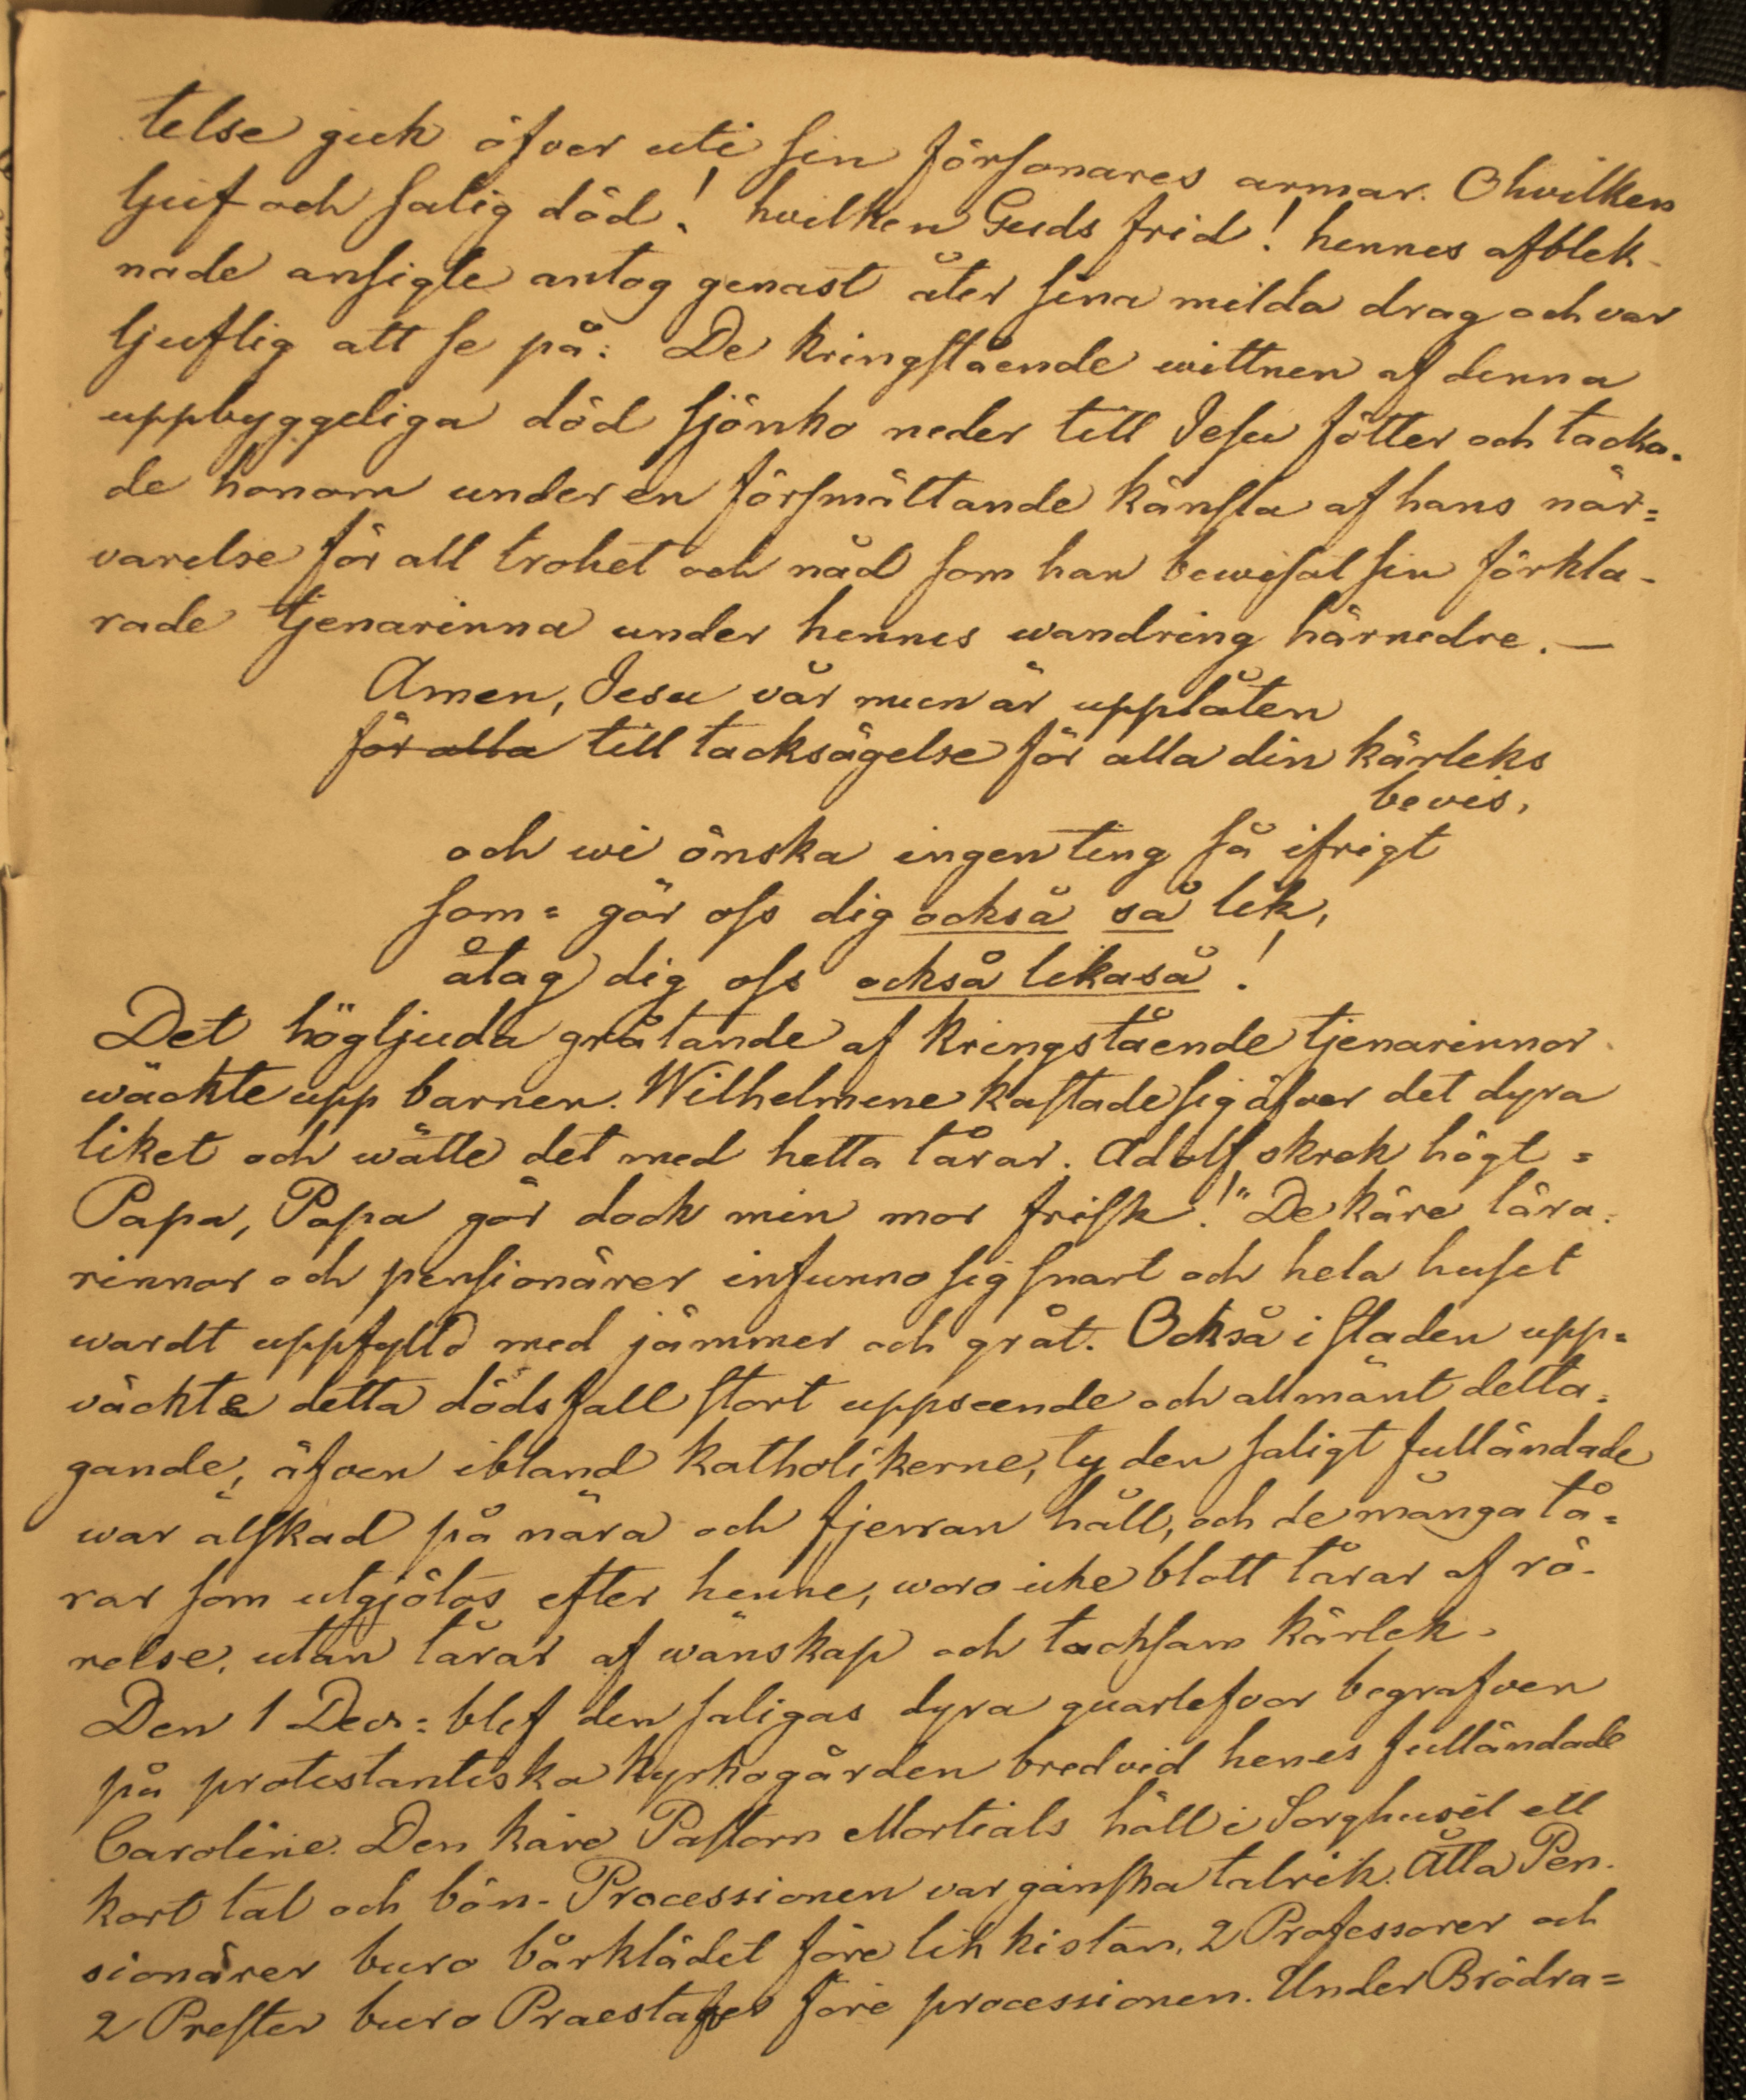 telse gick öfver uti sin försonares armar. O hvilken
ljuf och salig död! hvilken Guds frid! hennes afblek-
nade ansigte antog genast åter sina milda drag och var
ljuflig att se på: De kringstående wittnen af denna
uppbyggeliga död sjönko neder till Jesu fötter och tacka-
de honom under en försmältande känsla af hans när=
varelse för all trohet och nåd som han bewisat sin förkla-
rade tjenarinna under hennes wandring härnedre. —
Amen, Jesu vår mun är upplåten
för alla till tacksägelse för alla din kärleks
bevis,
och wi önska ingen ting så ifrigt
som = gör oss dig också så lik,
åtag dig oss också likaså!
Det högljuda gråtande af kringstående tjenarinnor
wäckte upp barnen. Wilhelmine kastade sig öfver det dyra
liket och wätte det med hetta tårar. Adolf skrek högt =
Papa, Papa gör dock min mor frisk!" De käre lära=
rinnor och pensionärer infunno sig snart och hela huset
wardt uppfylld med jämmer och gråt. Också i staden upp=
väckte detta dödsfall stort uppseende och allmänt delta=
gande, äfven ibland Katholikerne, ty den saligt fulländade
war älskad på nära och fjerran håll, och de många tå=
rar som utgjötos efter henne, woro icke blott tårar af rö-
relse, utan tårar af wänskap och tacksam kärlek.
Den 1 Decr= blef den saligas dyra quarlefvor begrafven
på protestantiska kyrkogården bredvid henes fulländade
Caroline. Den käre Pastorn Mortials höll i Sorghuset ett
kort tal och bön - Processionen var gänska talrik. Åtta Pen-
sionärer buro bårklädet före lik kistan, 2 Professorer och
2 Prester buro Praestafver före processionen. Under Brödra=